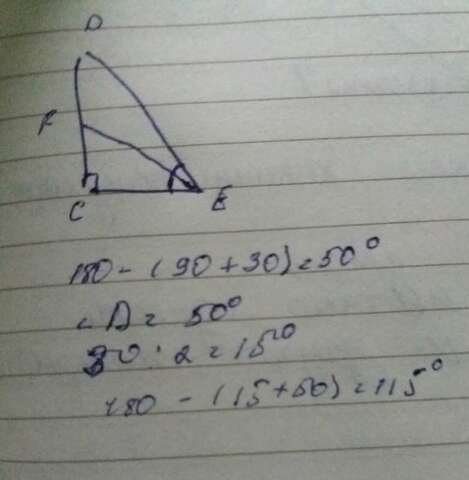 D
F
C E
180 - (90 + 30) = 50°
∠D = 50°
30 : 2 = 15°
180 - (15 + 50) = 115°